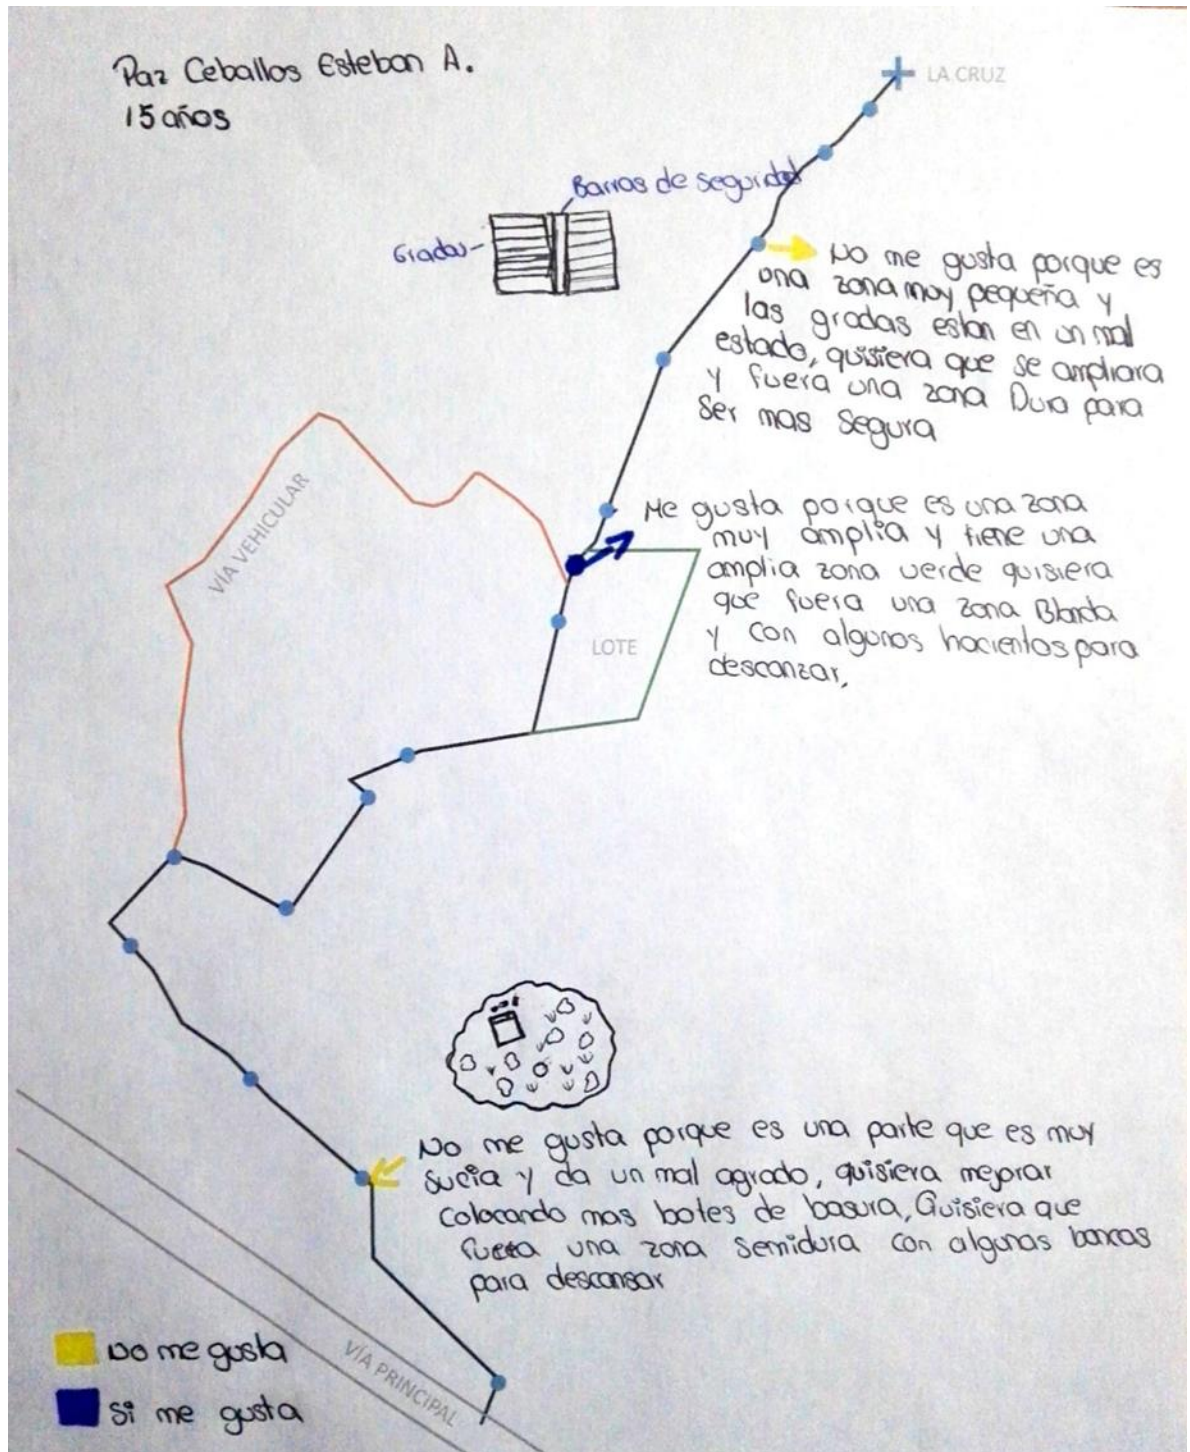 Paz Ceballos Esteban A.
15 años
LA CRUZ
Barras de seguridad
Gradas
No me gusta porque es
una zona muy pequeña y
las gradas estan en un mal
estado, quisiera que se ampliara
y fuera una zona Dura para
ser mas segura
VÍA VEHICULAR
Me gusta porque es una zona
muy amplia y tiene una
amplia zona verde quisiera
que fuera una zona Blanda
y con algunos hacientos para
descanzar,
LOTE
No me gusta porque es una parte que es muy
sucia y da un mal agrado, quisiera mejorar
colocando mas botes de basura, Quisiera que
fuera una zona semidura con algunas bancas
para descansar
VÍA PRINCIPAL
No me gusta
Si me gusta